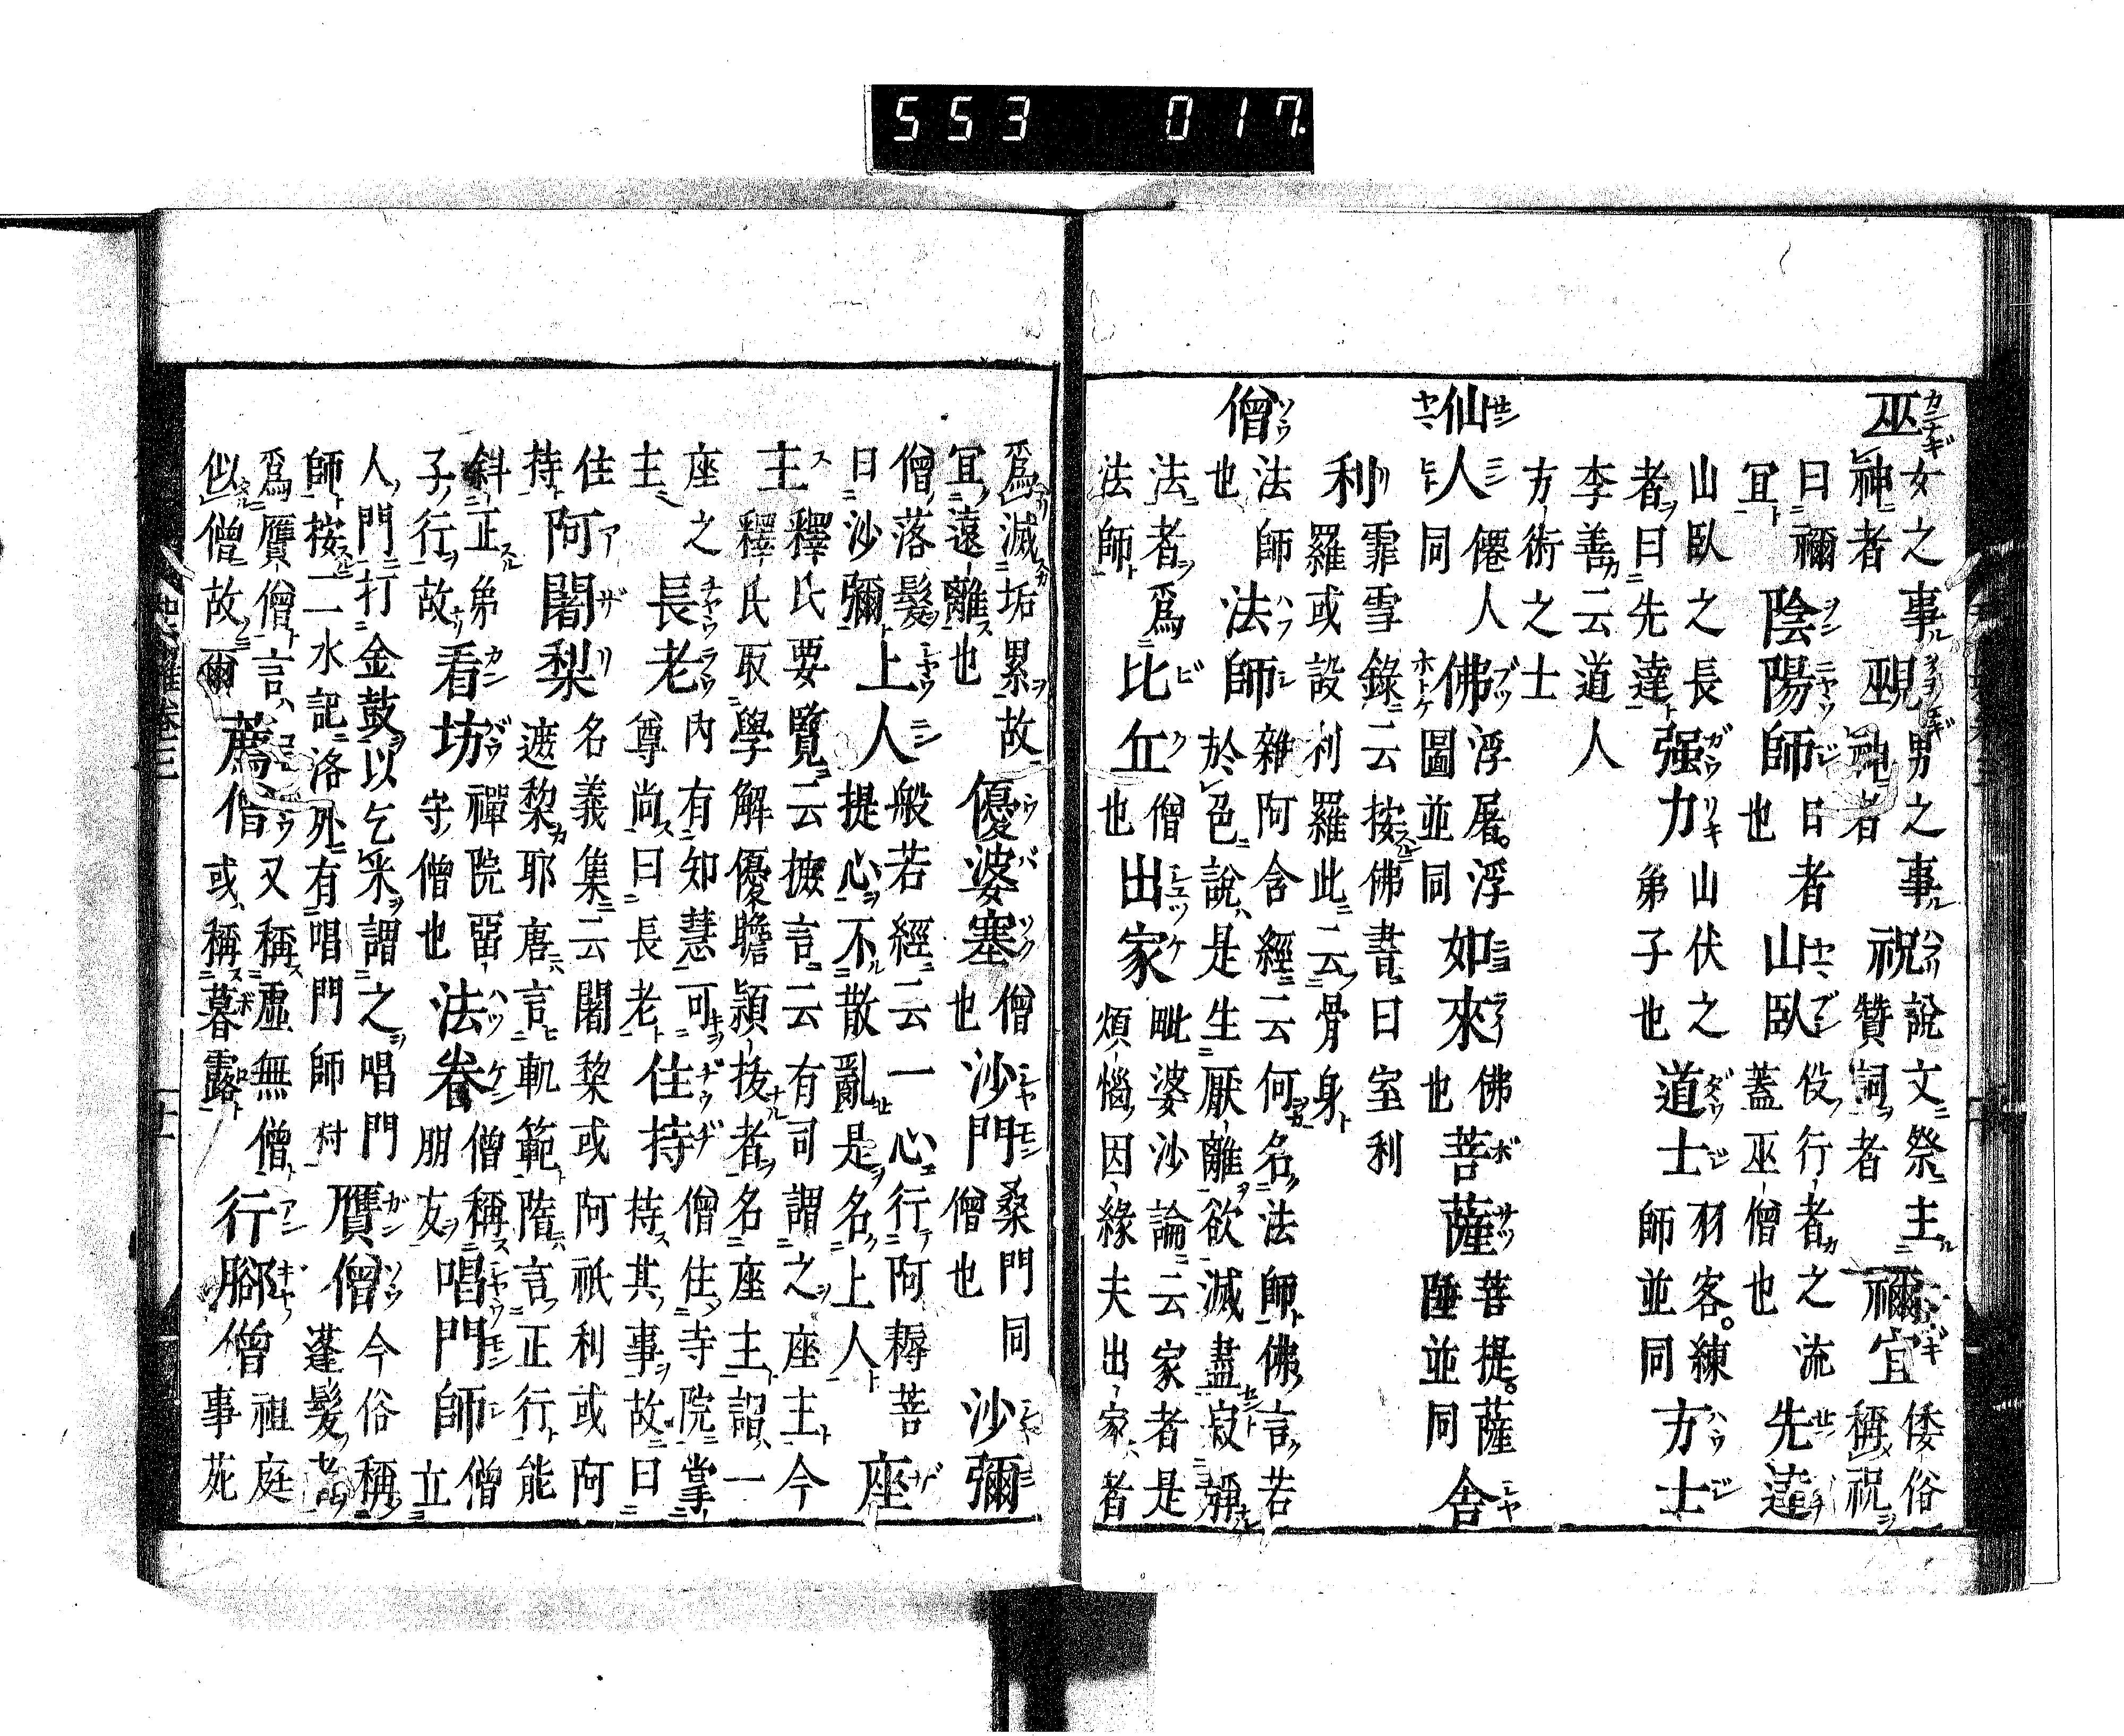 巫 女之事神者 覡 男之事神者 祝 說文祭主贊詞者 禰宜 倭俗稱祝
曰禰宜 陰陽師 日者也 山臥 役行者之流蓋巫僧也 先達
山臥之長者曰先達 强力 山伏之弟子也 道士 羽客。練師並同 方士
李善云道人方術之士
仙人 僊人同 佛 浮屠。浮圖並同 如來 佛也 菩薩 菩提。薩埵並同 舍
利 霏雪錄云按佛書曰室利羅或設利羅此云骨身
僧 法師也 法師 雜阿含經云何名法師佛言若於色說是生厭離欲滅盡寂靜
法者爲法師 比丘 僧也 出家 毗婆沙論云家者是煩惱因緣夫出家者
爲滅垢累故宜遠離也 優婆塞 僧也 沙門 桑門同僧也 沙彌
僧落髮曰沙彌 上人 般若經云一心行阿耨菩提心不散亂是名上人 座
主 釋氏要覽云摭言云有司謂之座主今釋氏取學解優贍頴拔者名座主謂一
座之主 長老 內有知慧可尊尚曰長老 住持 僧住寺院掌持其事故曰
住持 阿闍梨 名義集云闍梨或阿祇利或阿遮黎耶唐言軌範隋言正行能
斜正弟子行故 看坊 禪院畱守僧也 法眷 僧稱朋友 唱門師 僧立
人門打金鼓以乞米謂之唱門師按二水記洛外有唱門師村 贋僧 今俗稱蓬髮
爲贋僧言似僧故爾 薦僧 又稱虛無僧或稱暮露 行腳僧 祖庭事苑